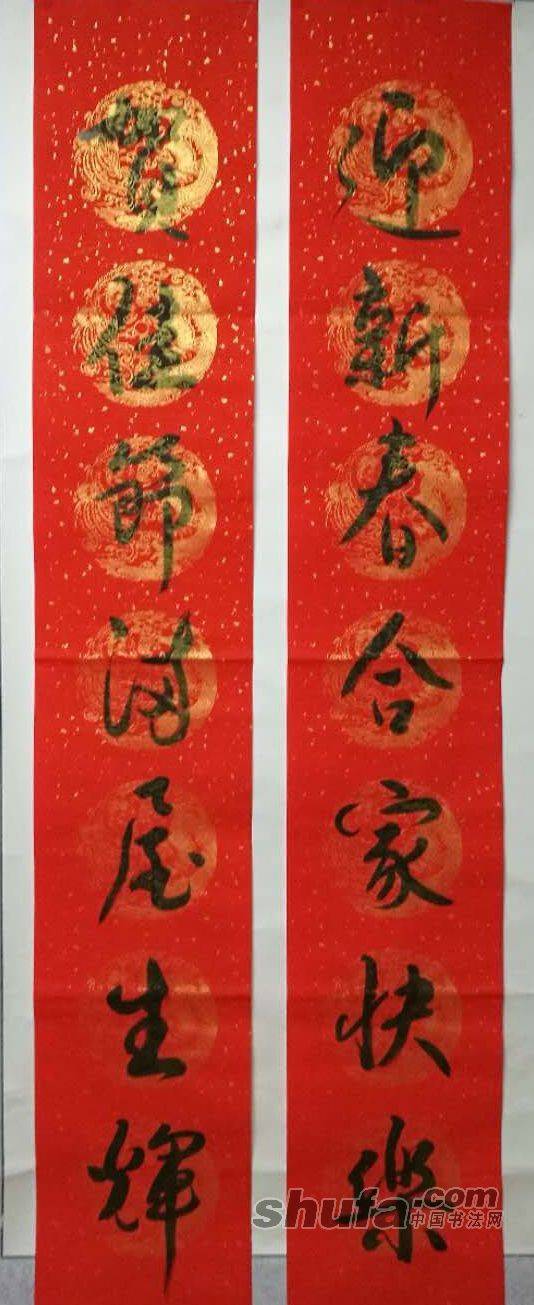 迎新春合家快樂
賀佳節满屋生輝
shufa.com
中国书法网